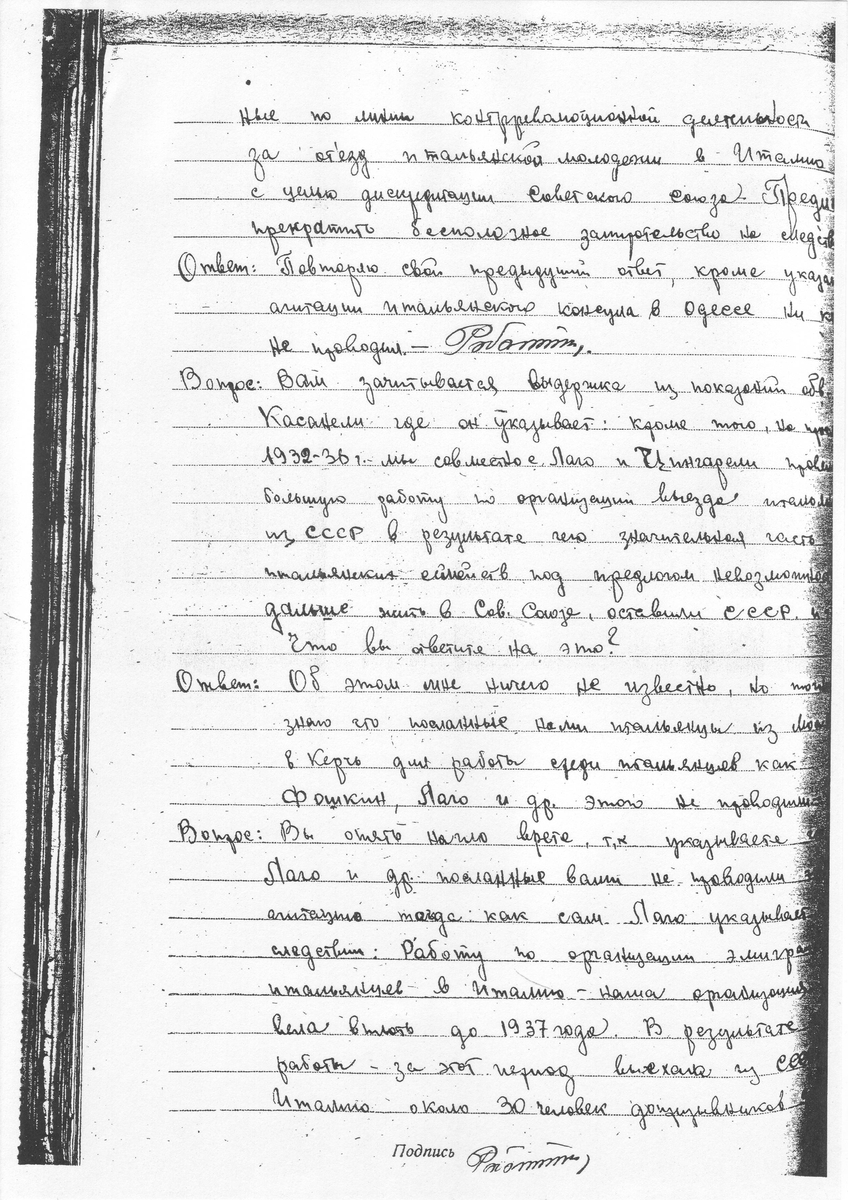 ные по линии контрреволюционной деятельности
за от'езд итальянской молодежи в Италию
с целью дискредитации Советского союза. Предл
прекратить бесполезное запирательство на следств
Ответ: Повторяю свой предыдущий ответ, кроме указан
агитации итальянского консула в Одессе ни к
не проводил. —
Вопрос: Вам зачитывается выдержка из показаний обв.
Касанели где он указывает: кроме того, на про
1932-36 г. мы совместно с Лаго и Цингарели прове
большую работу по организации выезда итальян
из СССР в результате чего значительная часть
итальянских семейств под предлогом невозможнос
дальше жить в Сов. Союзе, оставили СССР. и
Что вы ответите на это?
Ответ: Об этом мне ничего не известно, но
знаю что посланные нами итальянцы из Мос
в Керчь для работы среди итальянцев как
Фошкин, Лаго и др. этого не проводили
Вопрос: Вы опять нагло врете, т.к указываете
Лаго и др. посланные вами не проводили
агитацию тогда как сам Лаго указывает
следствии: Работу по организации эмигра
итальянцев в Италию – наша организация
вела вплоть до 1937 года. В результате
работы – за этот период выехала из ССС
Италию около 30 человек допризывников
Подпись